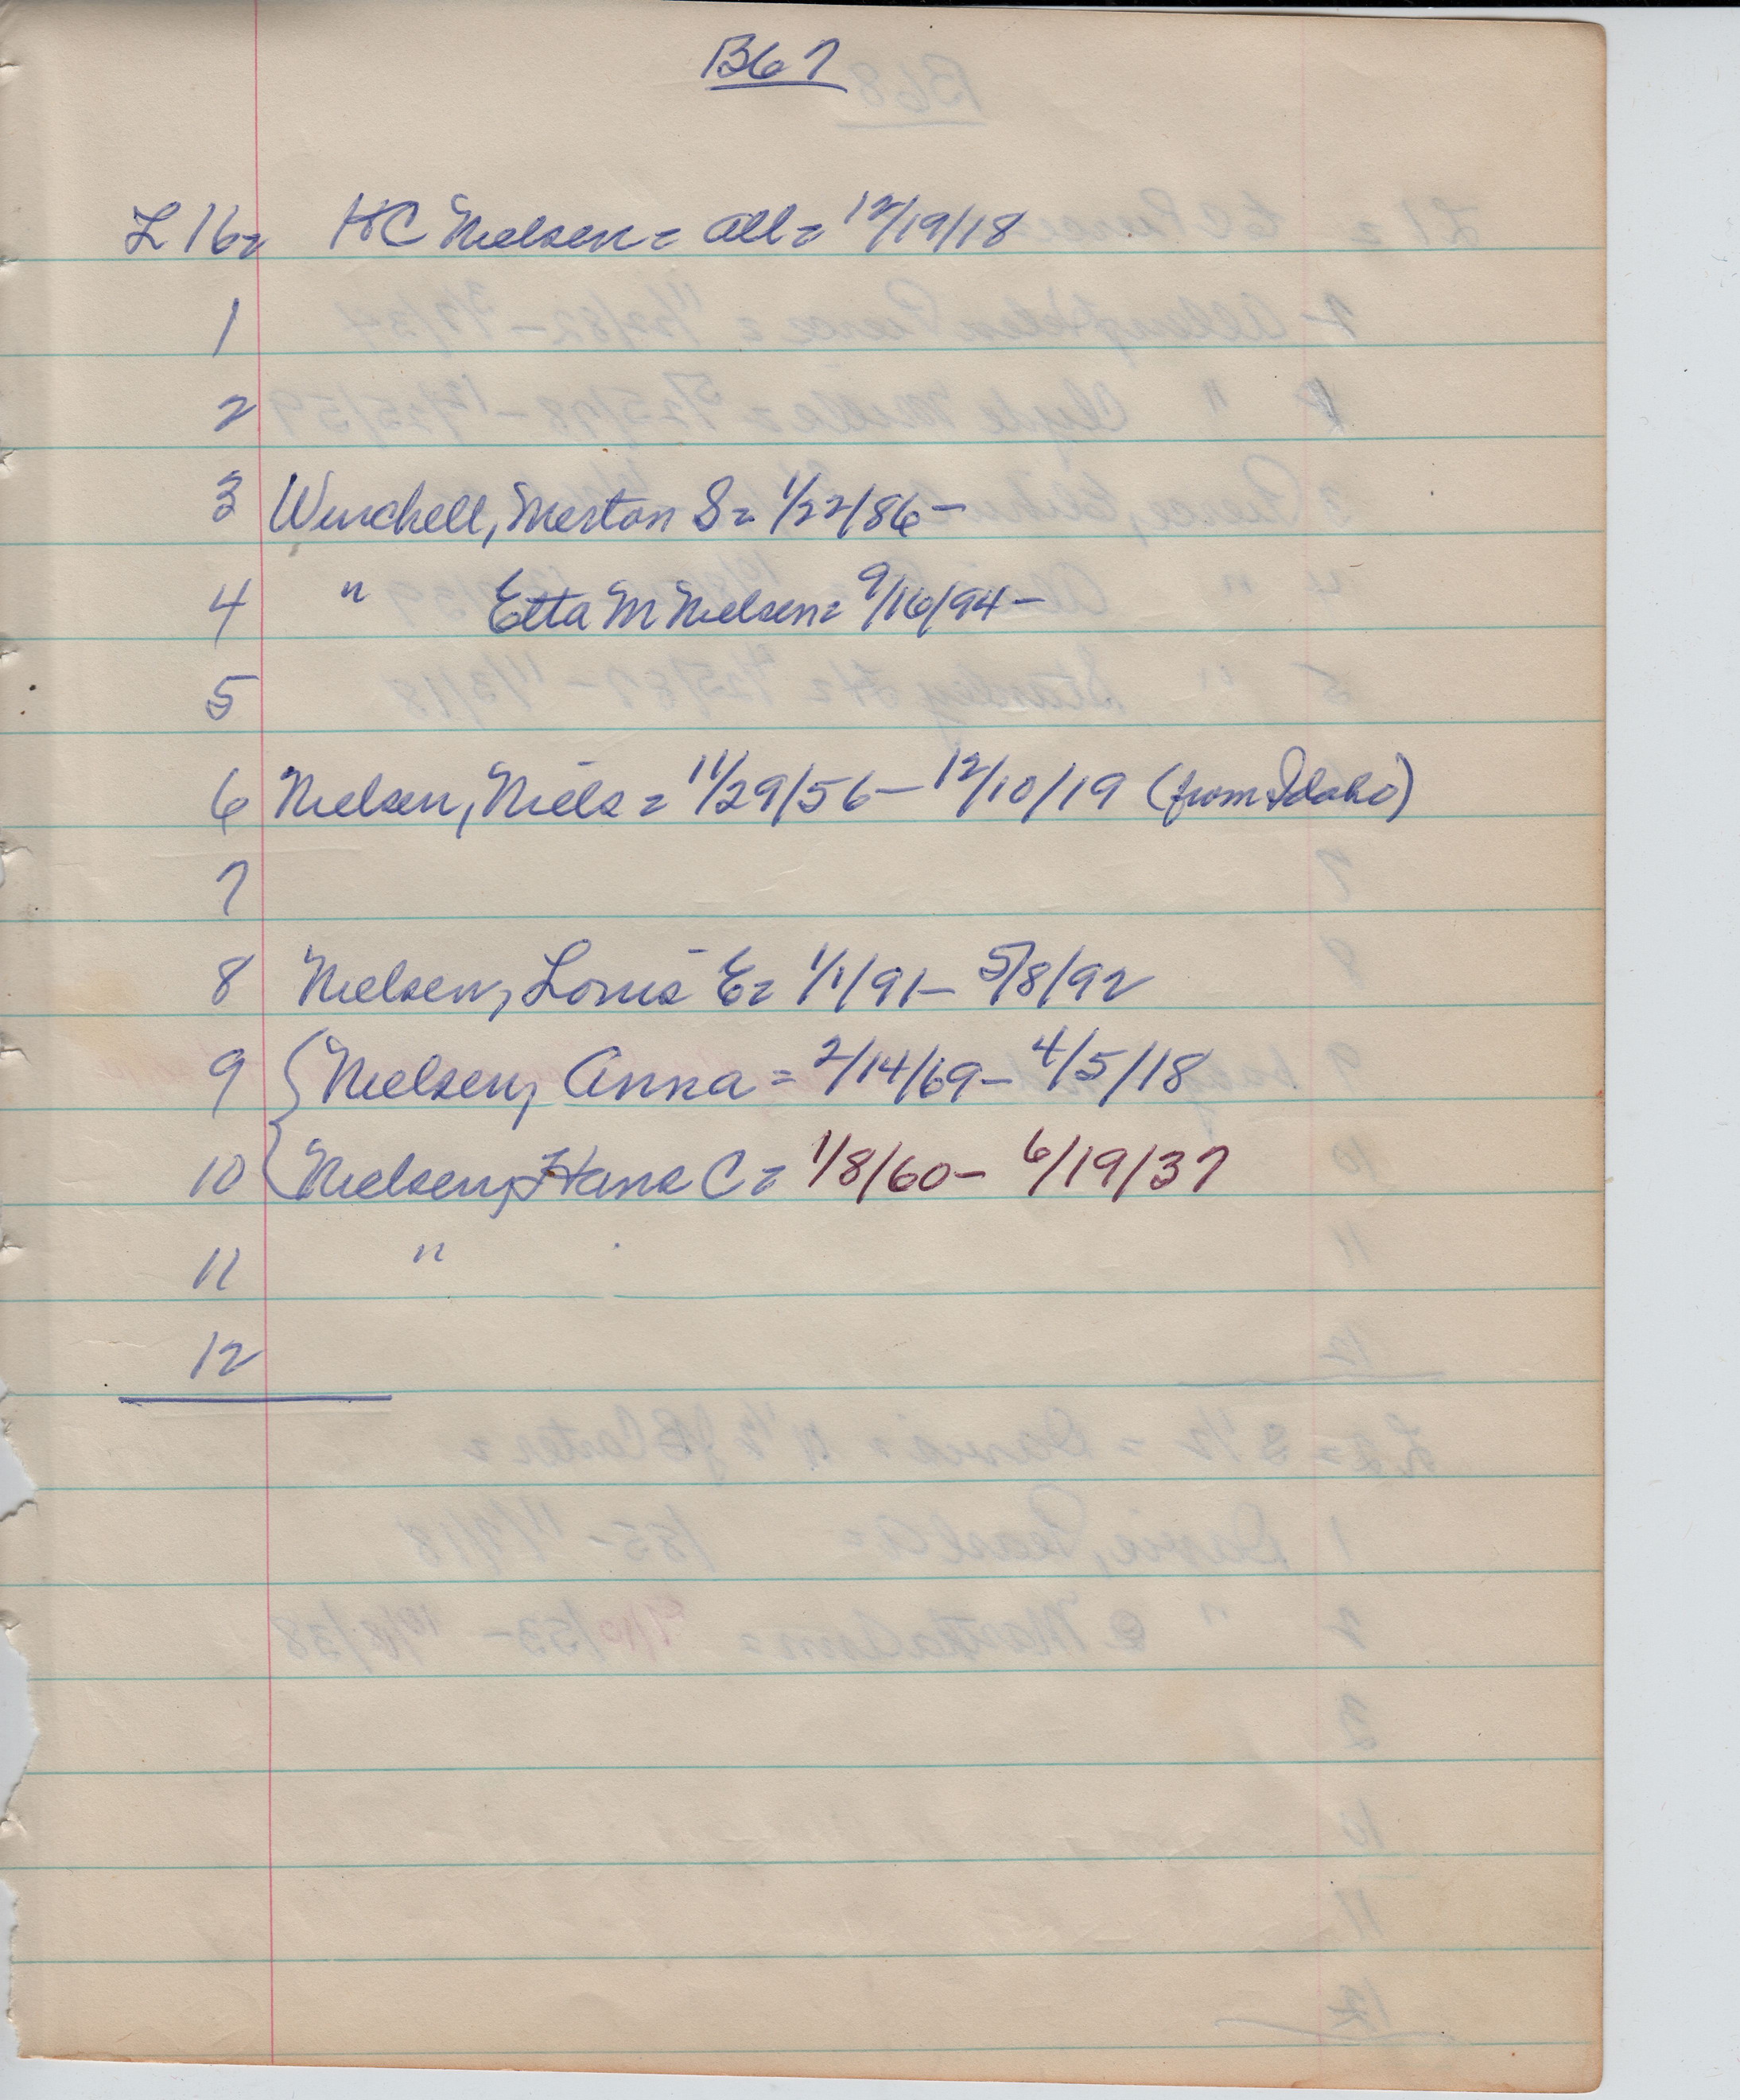 B67
L16= HC Nielsen = all = 12/19/18
1
2
3 Winchell, Merton S = 1/22/86 -
4 " Etta M Nielsen = 9/16/94 -
5
6 Nielsen, Niels = 11/29/56 - 12/10/19 (from Idaho)
7
8 Nielsen, Louis E = 1/1/91 - 5/8/92
9 { Nielsen, Anna = 2/14/69 - 4/5/18
10 Nielsen, Hans C = 1/8/60 - 6/19/37
11 "
12